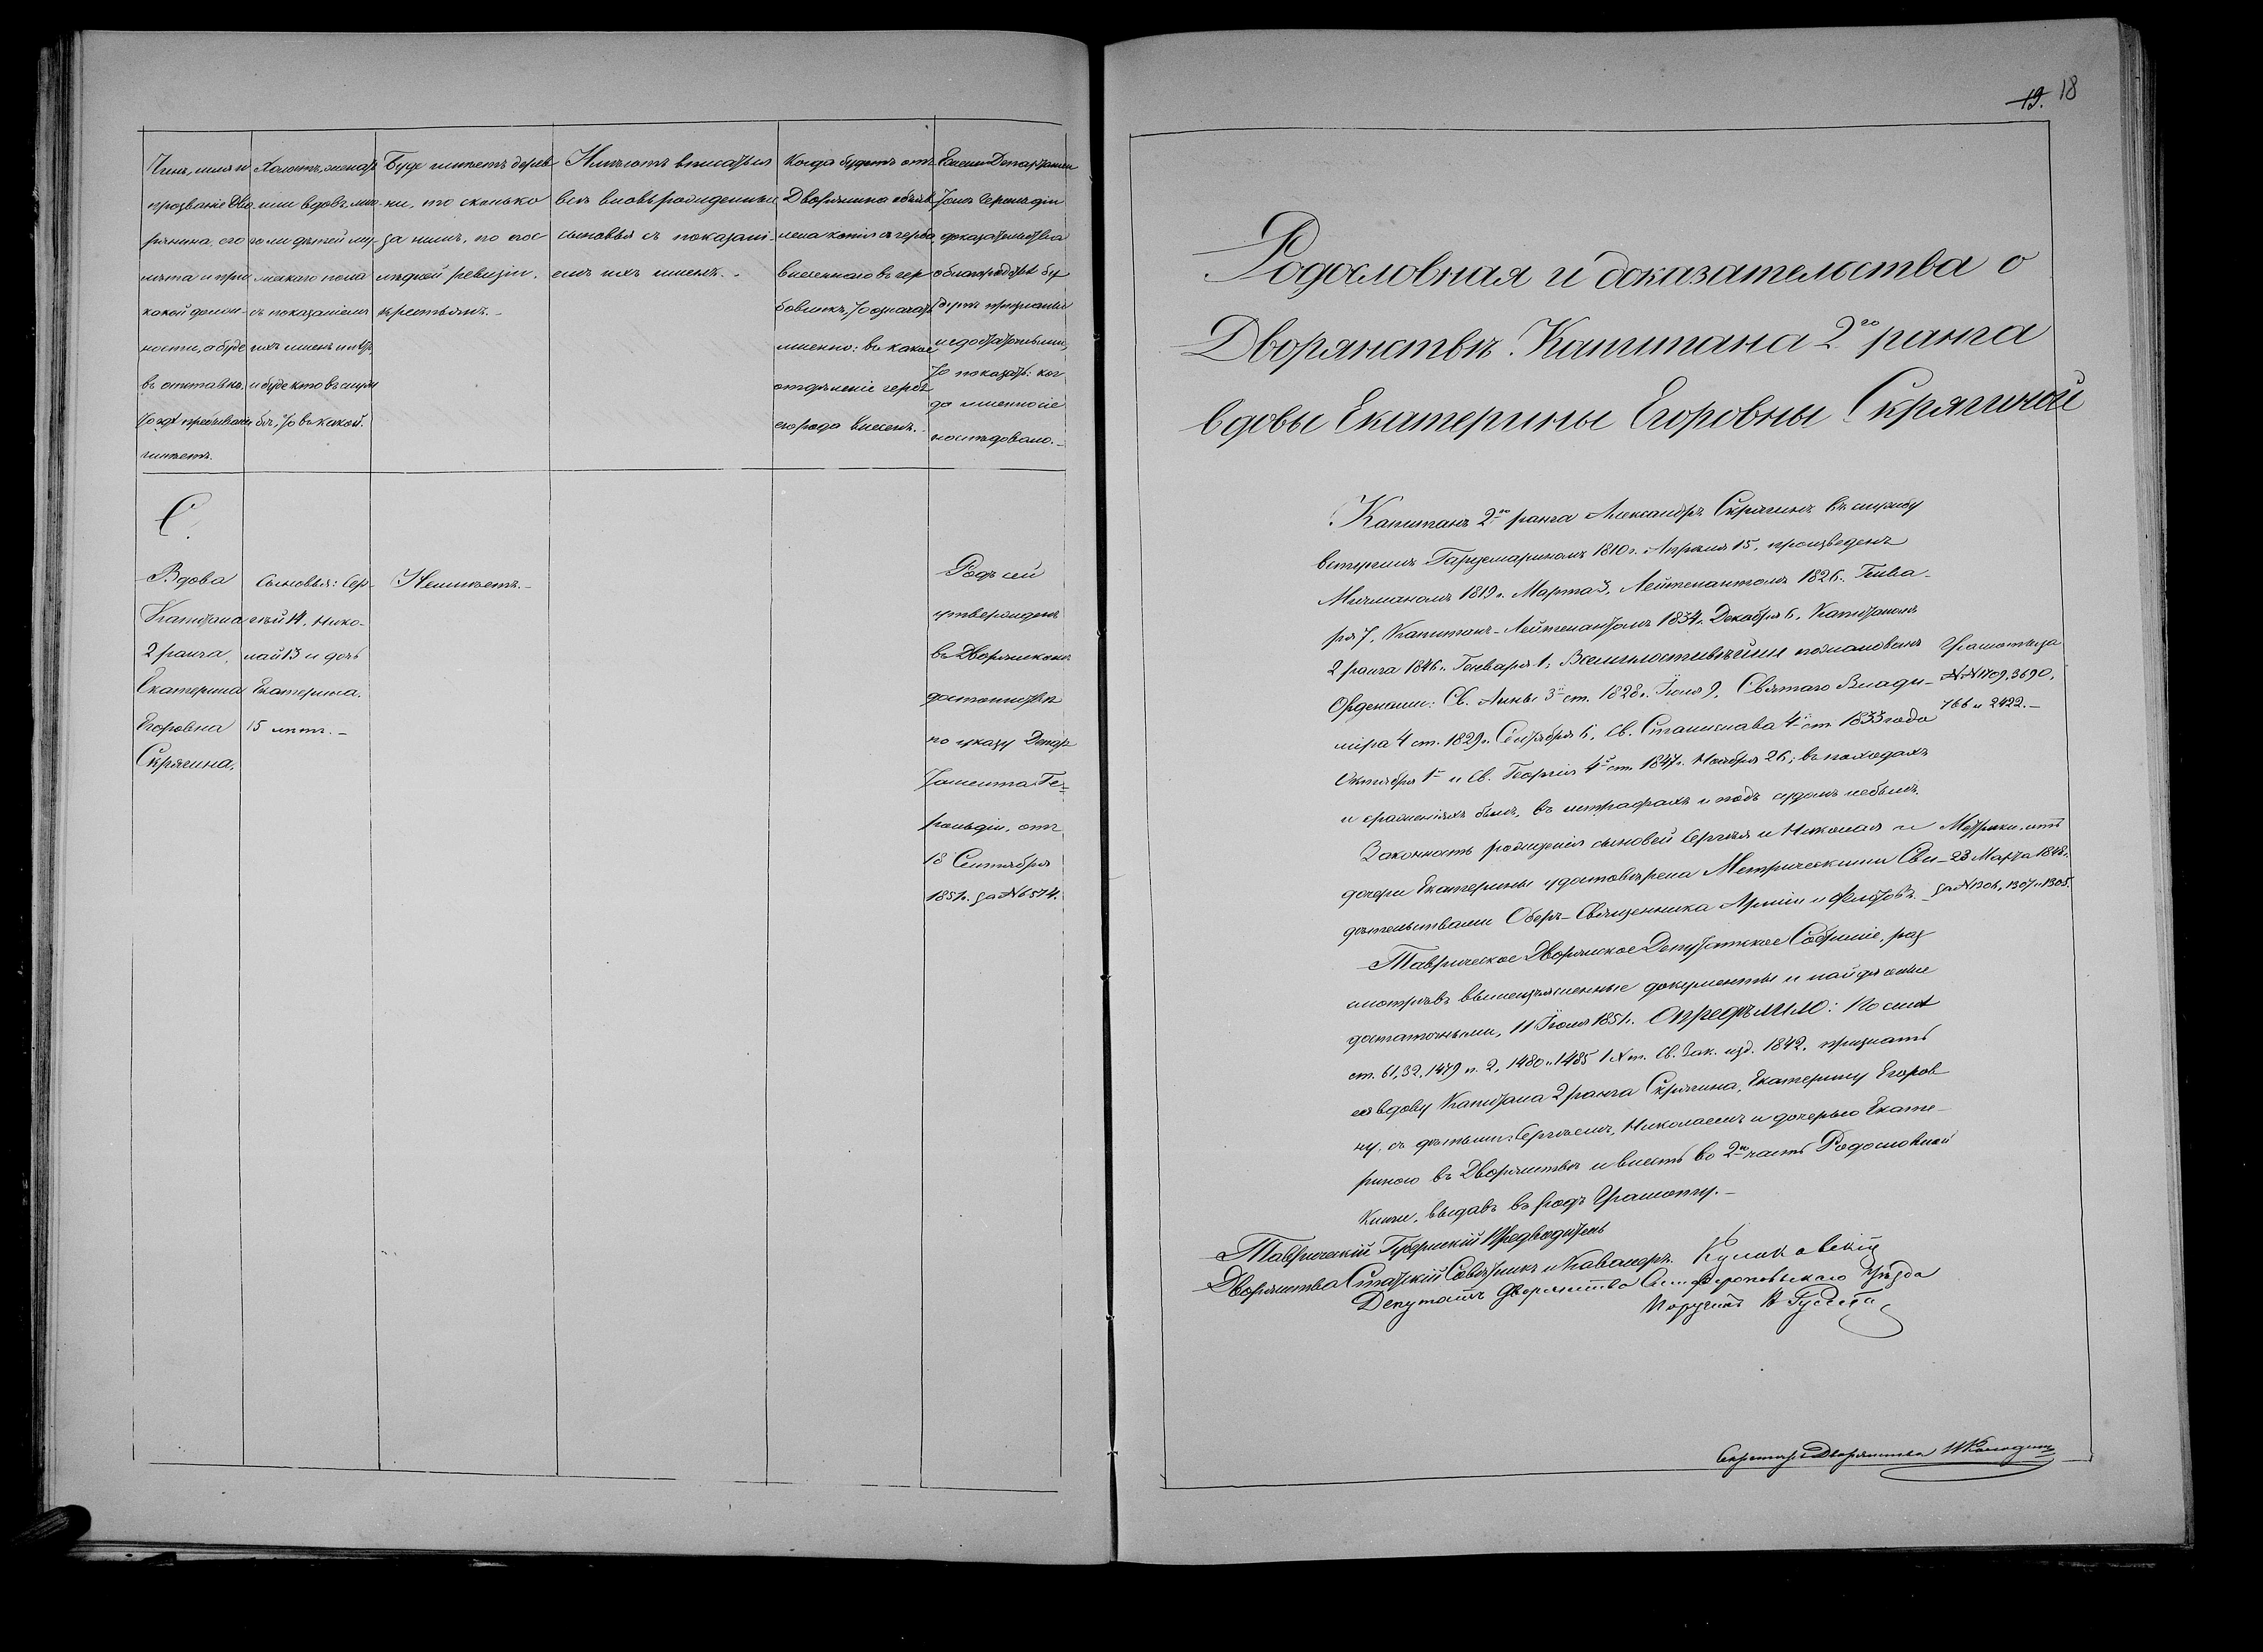 Чинъ, имя и
прозваніе Дво-
рянина, его
лѣта и при
какой должн-
ности, а буде
въ отставкѣ,
то гдѣ пребываніе
имѣетъ.
Холостъ, женатъ
или вдовъ, мно-
го ли дѣтей му-
жескаго пола
съ показаніемъ
ихъ именъ и лѣтъ,
и буде кто въ служ
бѣ, то въ какой.
Буде имѣетъ дерев
ни, то сколько
за нимъ, по пос
лѣдней ревизіи,
крестьянъ.-
Имѣютъ вписаться
всѣ вновь рожденные
сыновья съ показані-
емъ ихъ именъ.-
Когда будетъ отъ
Дворянина объяв
лена копія съ герба,
внесеннаго въ гер
бовникъ, то означать
именно: въ какое
отдѣленіе герб
его рода внесенъ.-
Если Департамен
томъ Герольдіи
доказательства
о благородствѣ бу
дутъ признаны
недостаточными,
то показать: ког
да именно сіе
послѣдовало.-
С.
Вдова
Капитана
2 ранга,
Екатерина
Егоровна
Скрягина,
Сыновья: Сер-
гѣй 14, Нико-
лай 13 и дочь
Екатерина,
15 лѣтъ.-
Неимѣетъ.-
Родъ сей
утвержденъ
въ Дворянскомъ
достоинствѣ
по указу Депар
тамента Ге-
рольдіи, отъ
18 Сентября
1851г. за № 6574.
19. 18
Родословная и доказательства о
Дворянствѣ Капитана 2го ранга
вдовы Екатерины Егоровны Скрягиной
Капитанъ 2го ранга Александръ Скрягинъ въ службу
вступилъ Гардемариномъ 1810г. Апрѣля 15, произведенъ
Мичманомъ 1819г. Марта 3, Лейтенантомъ 1826г. Генва-
ря 7, Капитанъ-Лейтенантомъ 1834г. Декабря 6, Капитаномъ
2 ранга 1846г. Генваря 1; Всемилостивѣйше пожалованъ
Орденами: Св. Анны 3й ст. 1828г. Іюля 9, Святаго Влади-
міра 4 ст. 1829г. Сентября 6, Св. Станислава 4й ст. 1833 года
Октября 1го и Св. Георгія 4й ст. 1847г. Ноября 26; въ походахъ
и сраженіяхъ былъ, въ штрафахъ и подъ судомъ небылъ.
Грамоты за
№№ 1709, 3690,
766 и 2422.-
Законность рожденія сыновей Сергѣя и Николая и
дочери Екатерины удостовѣрена Метрическими Сви-
дѣтельствами Оберъ-Священника Арміи и Флотовъ.
Метрики, отъ
23 Марта 1848г.
за № 1306, 1307 и 1305.
Таврическое Дворянское Депутатское Собраніе, раз
смотрѣвъ вышеизъясненные документы и найдя оные
достаточными, 11 Іюля 1851г. Опредѣлило: По силѣ
ст. 61, 32, 1479 п. 2, 1480 и 1485 IX т. Св. Зак. изд. 1842, признать
ея вдову Капитана 2 ранга Скрягина, Екатерину Егоров
ну, съ дѣтьми: Сергѣемъ, Николаемъ и дочерью Екате-
риною въ Дворянствѣ и внесть во 2ю часть Родословной
Книги, выдавъ въ родъ Грамоту.-
Таврическій Губернскій Предводитель
Дворянства Статскій Совѣтникъ и Кавалеръ
Депутатъ Дворянства Симферопольскаго Уѣзда
Поручикъ
Секретарь Дворянства